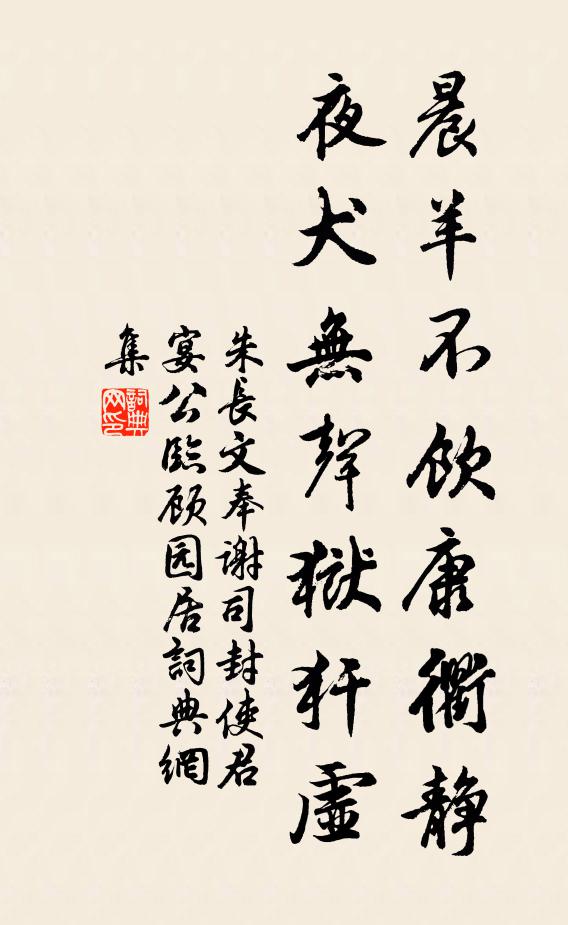 晨羊不飲康衢静
夜犬無聲獄犴虛
朱長文奉謝司封使君
宴公臨顾园居詞典網
集
詞典网印